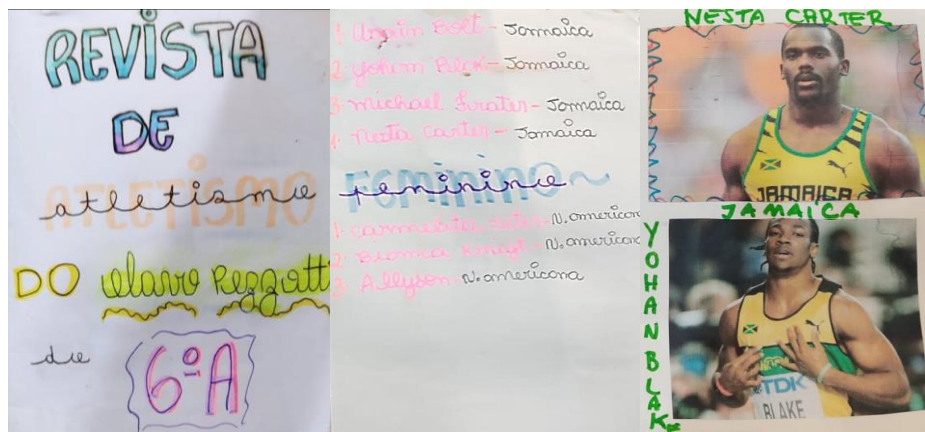 REVISTA
DE
atletismo
ATLETISMO
DO Olavo Pezzotti
de 6ºA
1. Usain Bolt - Jamaica
2 Yohan Blak - Jamaica
3 Michael Frater - Jamaica
4. Nesta Carter - Jamaica
Feminino
FEMININO
1. Carmelita - N. americana
2. Bianca Knigt - N. americana
3 Allyson - N. americana
NESTA CARTER
JAMAICA
JAMAICA
YOHAN BLAK
TDK
BLAKE